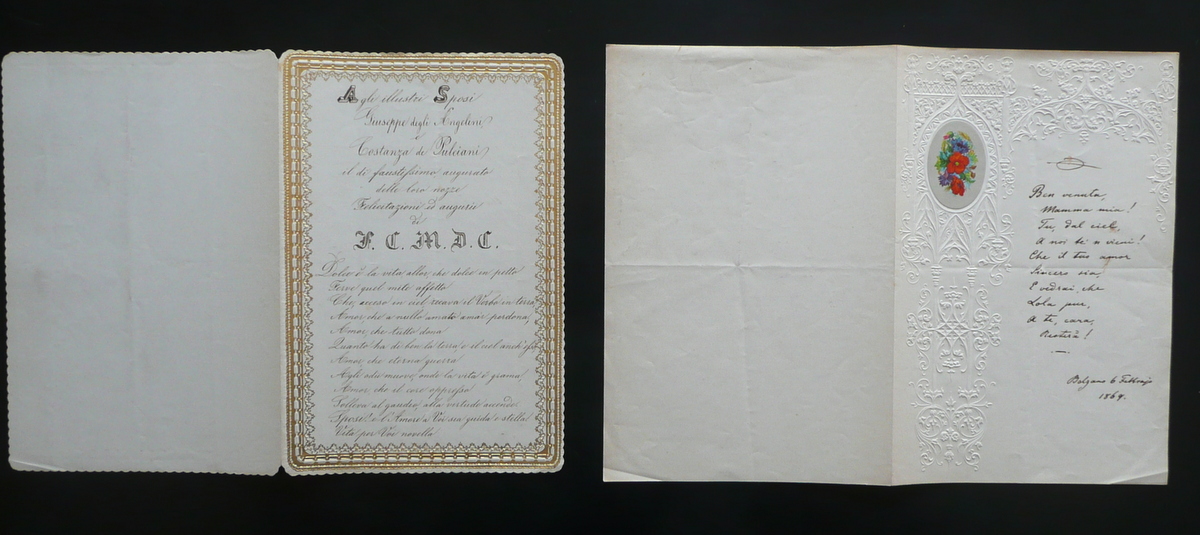 Agli illustri Sposi
Giuseppe degli Angeloni
e
Costanza de Pulciani
il dì faustissimo augurato
delle loro nozze
Felicitazioni ed augurii
di
F. C. M. D. C.
Dolce è la vita allor, che dolce in petto
Ferve quel misto affetto
Che, acceso in ciel, recava il Verbo in terra,
Amor che a nullo amato amar perdona,
Amor, che tutto dona
Quanto ha di ben la terra e il ciel anch'esso
Amor che eterna guerra
Agli odii muove, onde la vita è grama,
Amor, che il core oppresso
Solleva al gaudio, alla virtude
Sposi! e l'Amore a Voi sia guida e stella
Vita per Voi novella
Ben venuta,
Mamma mia!
Tu, dal ciel,
A noi te n vieni!
Che il tuo amor
Sincero sia,
E vedrai che
Lola pur,
A te, cara,
Bolzano 6 Febbrajo
1869.